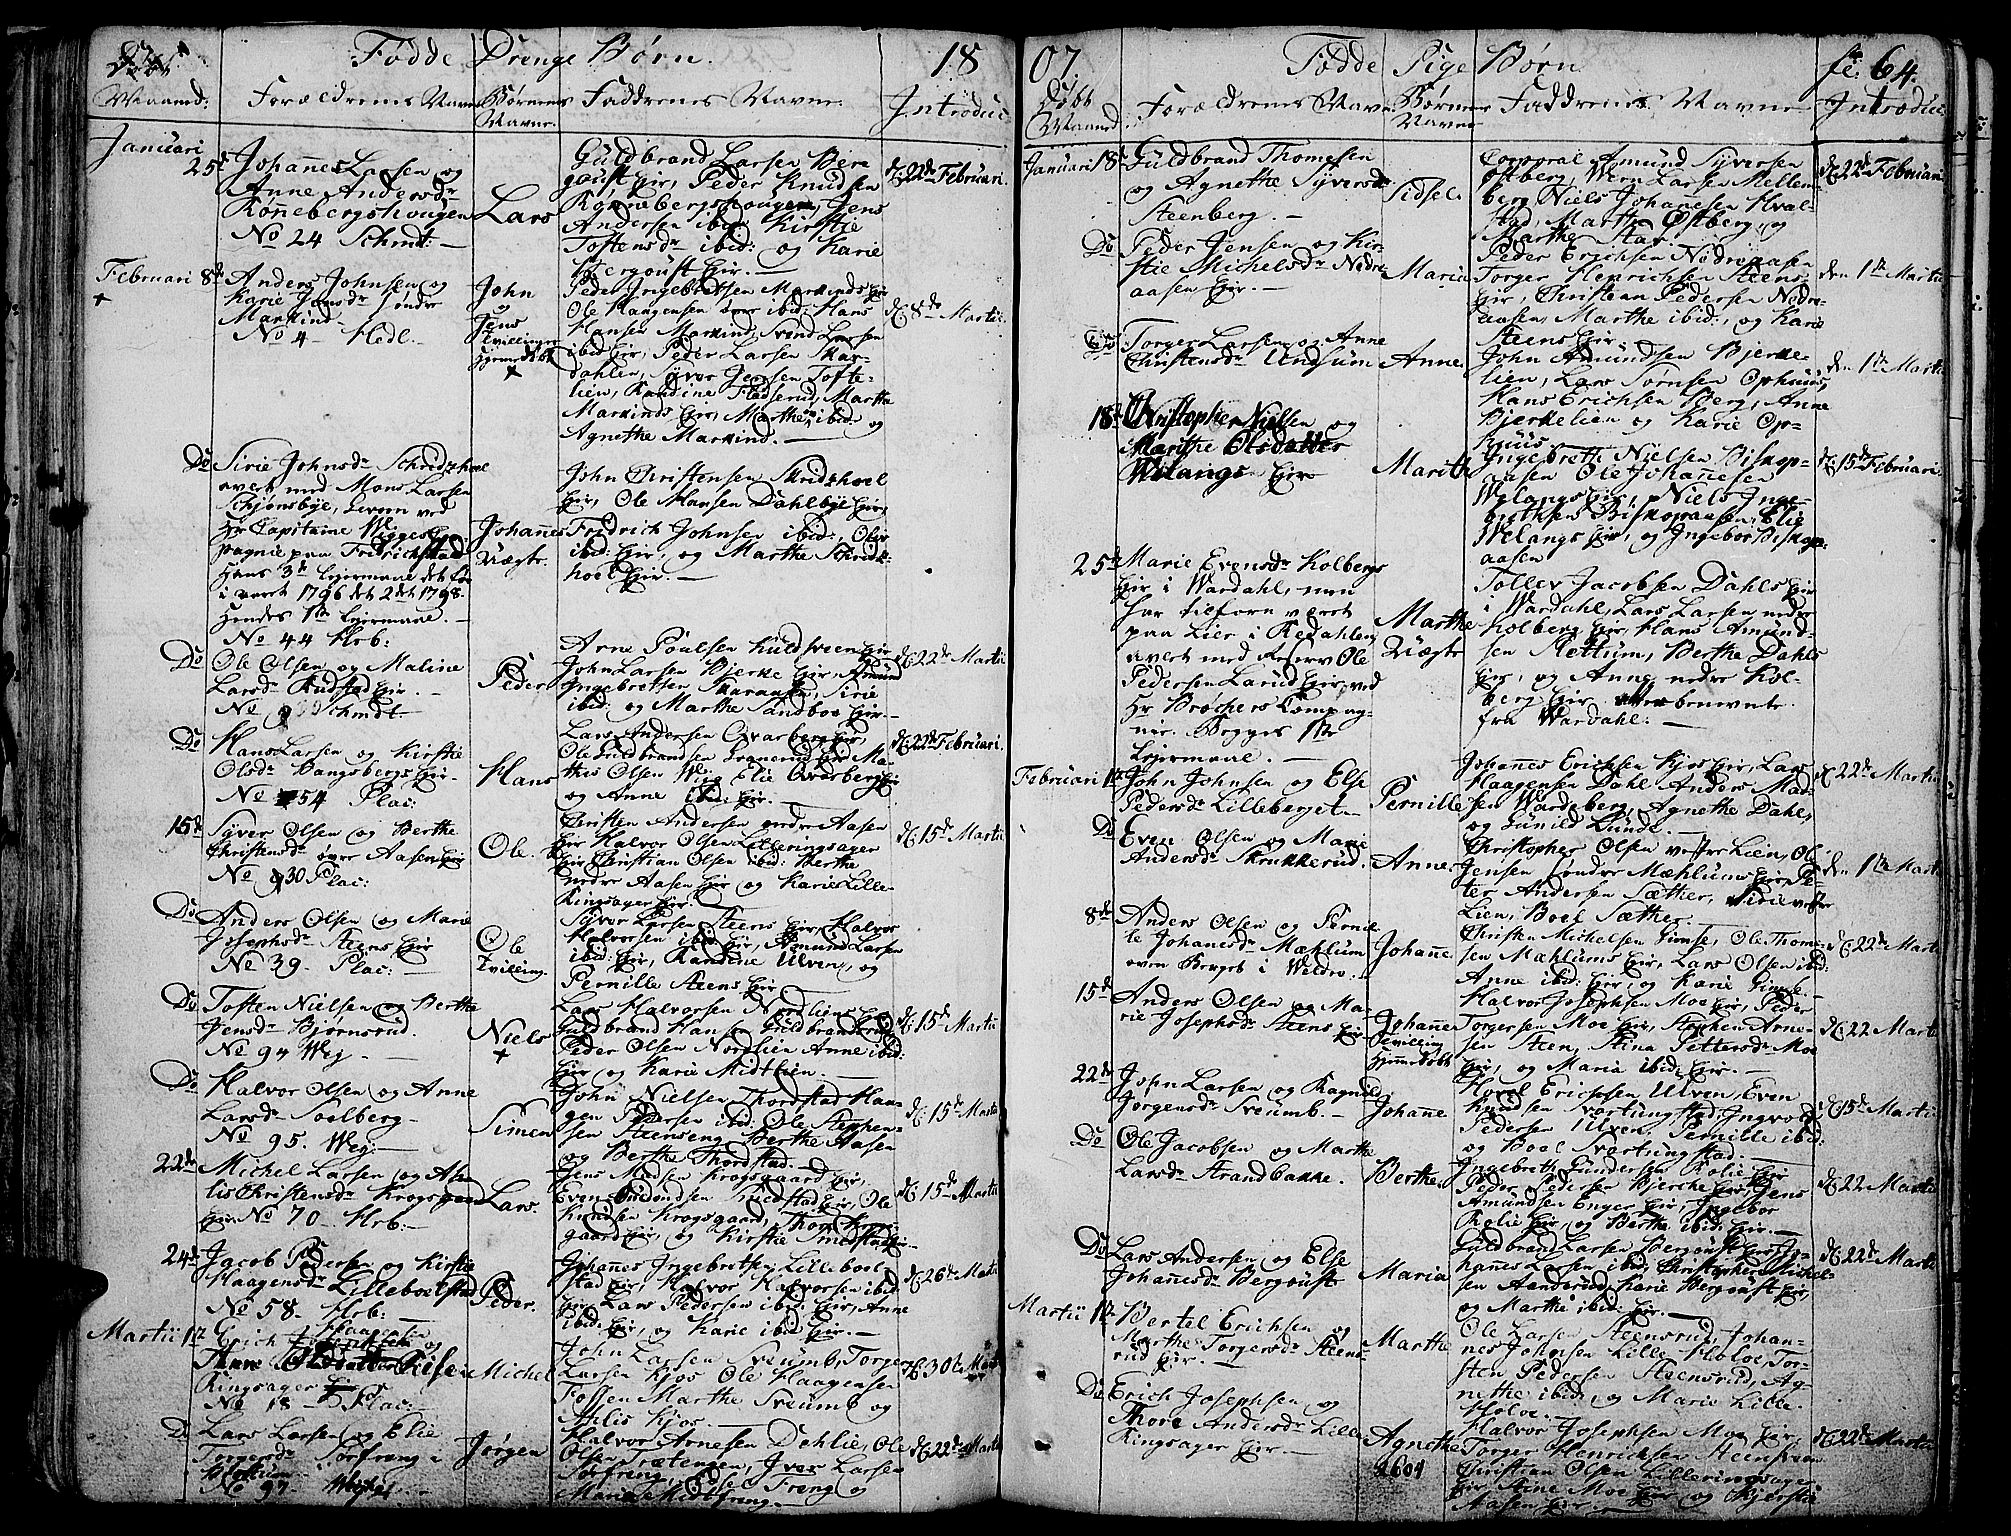 Fødde Drenge Børn. 18
Døbt
Maaned: Forældrenes Navne Børnenes Navne. Faddrenes Navne. Introduc
Januari
25de Johanes Larsen og
Anne Andersdr
Rønnebergshougen
No 24 Schmdt:
Lars
Guldbrand Larsen Ber
goust Eir, Peder Knudsen
Rønnebergshougen, Jens
Andersen ibid: Kirstie
Toftensdr ibid: og Karie
Bergoust Eir.
d: 22de Februari.
Februari 8de Anders Johnsen og
Karie Jensdr Søndre
Markind
No 4 Hedl.
John
og
Jens
Tvillinger
hjemdøbt
Peder Ingebretsen Markinds Eir
Ole Haagensen øvre ibid: Hans
Hansen Markind, Svend Larsen
ibid: Eir, Peder Larsen Skar-
dahlen, Syver Jensen Tofte-
lien, Randine Fladserud, Marthe
Markinds Eir, Marthe ibid: og
Agnethe Markind.
d: 8de Martii.
Do Sirie Johnsdr Schridshoel
avlet med Mons Larsen
Schjønsbye,
Hr Capitaine Wegge
pagnie paa Fredrichstad
Hans 3de Lejermaal det før
i varet 1796 det 2det 1798.
Hendes 1te Lejermaal.
No 44 Hrb:
Johannes
Uægte.
John Christensen Skridshoel
Eir, Ole Hansen Dahlbye Eir,
Fredrich Johnsen ibid:, Olia
ibid: Eir, og Marthe Schrids-
hoel Eir.
Do Ole Olsen og Maline
Larsdr Rudstad Eir.
Schmdt.
Peder
Arne Poulsen Kuldsveen Eir
John Larsen Bjerke Eir, Amund
Ingebretsen Skaraasen, Sirie
ibid: og Marthe Sandboe Eir.
d: 22de Martii
Do Hans Larsen og Kirstie
Olsdr Bangsbergs Eir.
No 54 Plac:
Hans
Lars Andersen Qvarberg Eir,
Ole Guldbrandsen Granerud Eir Ma-
this Olsen Weg Elie Qvarberg Eir
og Anne ibid: Eir.
d: 22de Februari.
15de Syver Olsen og Berthe
Christensdr øvre Aasen Eir
No 30 Plac:
Ole.
Christen Andersen nedre Aasen
Eir Halvor Olsen Lilleringsager
Eir Christian Olsen ibid: Berthe
nedre Aasen Eir og Karie Lille-
Ringsager Eir.
d: 15de Martii
Do Anders Olsen og Marie
Josephsdr Steens Eir
No 39. Plac:
Ole
Tvilling.
Syver Larsen Steens Eir, Halvor
Halvorsen ibid: Eir, Amund Larsen
ibid: Eir, Randine Ulven, og
Pernille Steens Eir
Do Toften Nielsen og Berthe
Jensdr Bjørnsrud.
No 94 Weg.
Niels
Lars Halvorsen Nordliens Eir
Guldbrand Hansen Guldbrandsrud
Peder Olsen Nordlien Anne ibid:
Eir og Karie Midtlien.
d: 15de Martii
Do Halvor Olsen og Anne
Larsdr Soelberg.
No 95. Weg.
Simen
John Nielsen Thordstad Haa-
gen Pedersen ibid: Ole Steppen-
sen Steenseng Berthe Aasen
og Berthe Thordstad.
d: 15de Martii
22de Michel Larsen og A
lis Christensdr Krogsgaard
Eir. No 70 Hrb:
Lars.
Jens Madsen Krogsgaard Eir,
Even Smedstad Eir, Ole
Knudsen Krogsgaard, Thore Krogs-
gaard Eir og Kirstie Smedstad Eir.
d: 15de Martii
24de Jacob Pedersen og Kirstie
Haagensdr Lilleboelstad
No 58. Hrb:
Peder.
Johanes Ingebretsen Lilleboel-
stad Eir, Halvor Halvorsen ibid:
Eir, Lars Pedersen ibid: Eir, Anne
ibid: Eir, og Karie ibid: Eir.
d: 26de Martii
Martii 1te Erich Haagensen og
Anne
Ringsager
No 18 Plac:
Michel
John Larsen Sveumb, Torger
Larsen Kjos Ole Haagensen
Tossen Marthe Sveumb og
Ahlis Kjos.
d: 30te Martii
Do Lars Larsen og Elie
Torgersdr Torfrang
No 97
Jørgen
Halvor Arnesen Dehlie, Ole
Olsen Trætengen, Iver Larsen
Torfreng, Frang og
Maria Midtfreng.
d: 22de Martii
07 Fødde Pige Børn fo: 64.
Døbt
Maaned. Forældrenes Navne Børnenes Navne Faddrenes Navne. Introduc
Januari 18de Guldbrand Thomesen
og Agnethe Syversdr
Steenberg.
Sidsel.
Corporal Amund Syversen
Østberg, Wern Larsen Mellem
berg Niels Johanesen Hval-
stad, Marthe Østberg, og
Marthe Stav.
d: 22de Februari
Do Peder Jensen og Kir-
stie Michelsdr Nedre
aasen Eir.
Maria
Peder Erichsen Nedreaasen
Torger Henrichsen Steens-
Eir, Christian Pedersen Nedre-
aasen, Marthe ibid:, og Karie
Steens Eir.
den 1te Martii
Do Torger Larsen og Anne
Christensdr Undsum
Anne
John Amundsen Bjerke-
lien, Lars Tørnsen Ophuus
Hans Erichsen Berg, Anne
Bjerkelien og Karie Op-
huus.
den 1te Martii
18de Christopher Nielsen og
Marithe Olsdatter
Welangs Eir
Marith
Ingebrett Nielsen Biskop-
aasen Ole Johanesen
Welangs Eir, Niels Inge-
bretsen Biskopaasen, Elie
Welangs Eir, og Ingebor Biskop-
aasen
d: 15de Februari
25de Marie Evensdr Kolbergs
Eir i Wardahl, men
har tilforn været
paa Lier i Redahlen
avlet med Reserv Ole
Pedersen Larud Eir, ved
Hr Brøchers Compag-
nie. Begges 1te
Lejermaal.
Marthe
Uægte
Tollev Jacobsen Dahls Eir
i Wardahl, Lars Larsen nedre
Kolberg Eir, Hans Amund-
sen Rettum, Berthe Dahls
Eir, og Anne nedre Kol-
berg Eir benævnte
fra Wardahl.
Februari 1te John Johnsen og Else
Pedersdr Lilleberget.
Pernille
Johanes Erichsen Kjos Eir, Lars
Haagensen Dahl Anders Mad-
sen Wardeberg, Agnethe Dahl,
og Gunild Lunde.
d: 22de Martii
Do Even Olsen og Marie
Andersdr Skrukkerud.
Anne
Christopher Olsen vestre Lien, Ole
Jensen søndre Mæhlum Eir, Pe-
ter Andersen Sæther, Sidie vestre
Lien, Boel Sæther.
den 1te Martii
8de Anders Olsen og Pernil-
le Johanesdr Mæhlum
oven Berget i Weldre.
Johanne
Christen Michelsen Gimse, Ole Thome-
sen Mæhlums Eir, Lars Olsen ibid:
Anne ibid: Eir og Karie Gimse.
d: 22de Martii
15de Anders Olsen og Ma-
rie Josephsdr Steens Eir
Johanne
Tvilling
Hjemmedøbt
Halvor Josephsen Moe Eir, Peder
Torgersen Moe Eir, Stephen Arne-
sen Steen, Stina Pettersdr Moe
Eir, og Maria ibid: Eir.
d: 22 Martii
22de John Larsen og Ragnild
Jørgensdr Sveumb.
Johane
Havel Erichsen Ulven, Even
Knudsen Svartungstad, Ingvold
Pedersen Ulven, Pernille ibid:
og Boel Svartungstad.
d: 15de Martii
Do Ole Jacobsen og Marthe
Larsdr Strandbakke.
Berthe.
Ingebrett Gundersen Rolie Eir
Peder Pedersen Bjerche Eir, Jens
Amundsen Enger Eir, Ingebor
Rolie Eir, og Berthe ibid: Eir.
d: 22 Martii
Do Lars Andersen og Else
Johanesdr Bergoust
Maria
Guldbrand Larsen Bergoust Eir, Jo-
hanes Larsen ibid, Christopher Michel-
sen Aanderud, Karie Bergoust Eir,
og Marthe ibid: Eir.
d: 22de Martii
Martii 1te Bertel Erichsen og
Marthe Torgersdr Steens-
rud Eir.
Marthe
Ole Larsen Steensrud, Johan-
nes Johnsen Lille-Holoe, Tor-
sten Pedersen Steensrud, Ag-
nethe ibid: og Marie Lille-
Holoe.
Do Erich Josephsen og
Thore Andersdr Lille
Ringsager Eir.
Agnethe
2601
Halvor Josephsen Moe Eir,
Torger Henrichsen Steensveen
Christian Olsen Lilleringsager
Eir, Anne Moe Eir og Kjersti
Aasen Eir.
d: 22de Martii